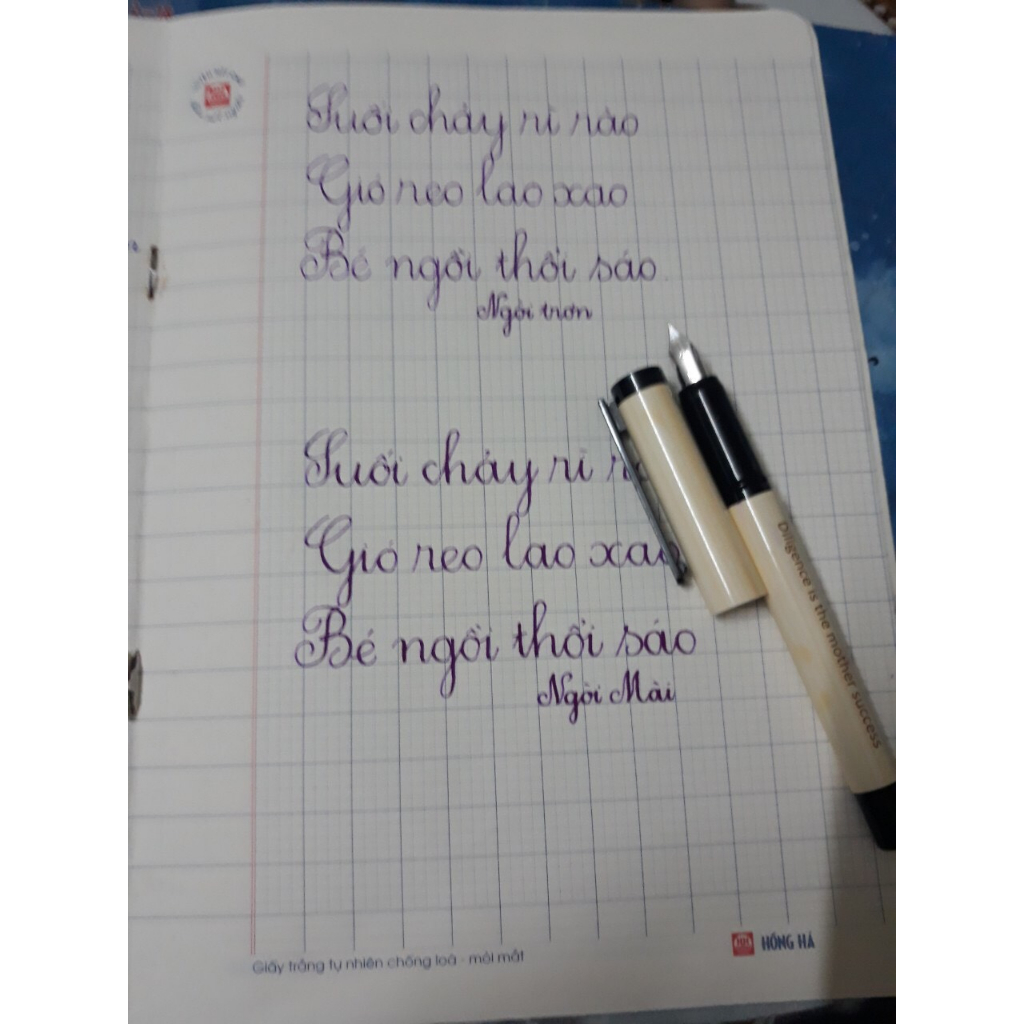 Suối chảy rì rào
Gió reo lao xao
Bé ngồi thổi sáo
Ngòi trơn
Suối chảy rì
Gió reo lao xao
Bé ngồi thổi sáo
Ngòi Mài
Diligence is the mother success
HỒNG HÀ
Giấy trắng tự nhiên chống loá - mỏi mắt